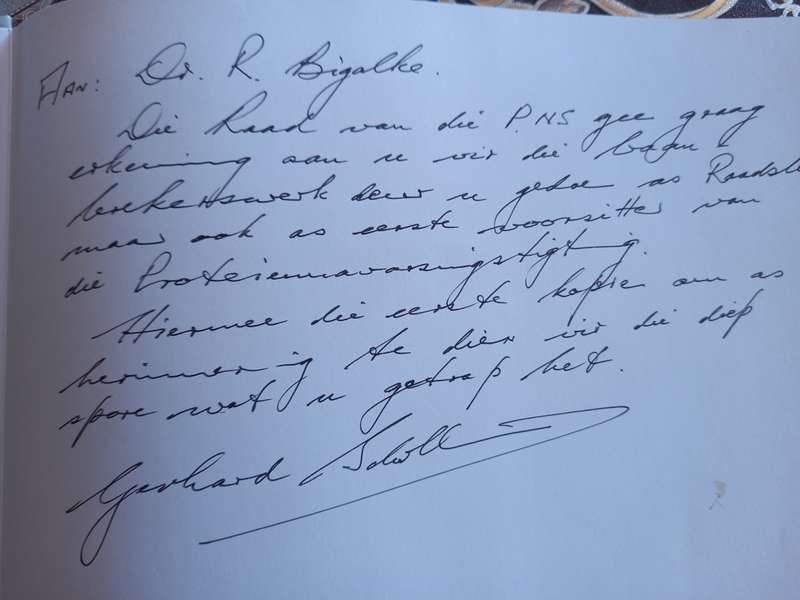 AAN: Dr. R. Bigalke.
Die Raad van die P.NS gee graag
erkenning aan u vir die baan
brekerswerk deur u gedoen as Raadsl
maar ook as eerste voorsitter van
die Proteïennavorsingstigting.
Hiermee die eerste kopie om as
herinnering te dien vir die diep
spore wat u getrap het.
Gerhard